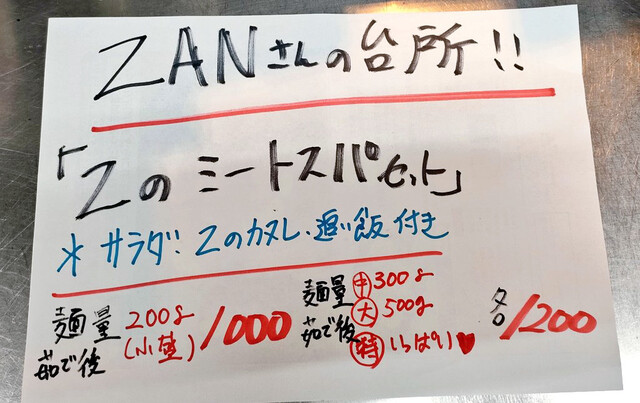 ZANさんの台所!!
「Zのミートスパセット」
*サラダ・Zのカヌレ・追い飯付き
麺量 茹で後 200g (小盛) 1000
麺量 茹で後 中300g 大500g 特いっぱい♥ 各1200